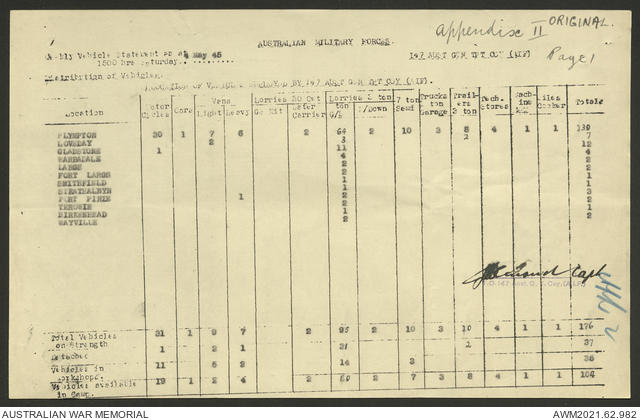 appendix II ORIGINAL.
AUSTRALIAN MILITARY FORCES.
Weekly Vehicle Statement as at May 45 147 AUST GEN TPT COY (AIF)
1500 hrs Saturday. Page 1
Distribution of Vehicles.
LOCATION OF VEHICLES 147 AUST GEN TPT COY (AIF).
Location Motor Cycles Cars Vans Light Heavy Lorries 30 Cwt Lorries 3 ton 7 ton Semi Trucks ton Garage Trailers Tech. Stores Totals
PLYMPTON 30 1 7 6 2 64 2 10 3 8 4 1 1 139
LOVEDAY 2 3 2 7
GLADSTONE 1 11 12
WARRADALE 4 4
LARGS 2 2
FORT LARGS 1 1
SMITHFIELD 1 1
STRATHALBYN 3
PORT PIRIE 1 2
TEROWIE 1 1
BIRKENHEAD 2 2
WAYVILLE 2
Capt
O.C. 147 Aust. G. T. Coy. (A.I.F.)
Total Vehicles on Strength 31 1 9 7 2 95 2 10 3 10 4 1 1 176
Detached 1 2 1 31 2 37
Vehicles in Workshops. 11 5 2 14 3 35
Vehicles available in Camp. 19 1 2 4 2 50 2 7 3 4 1 1 104
AUSTRALIAN WAR MEMORIAL AWM2021.62.982